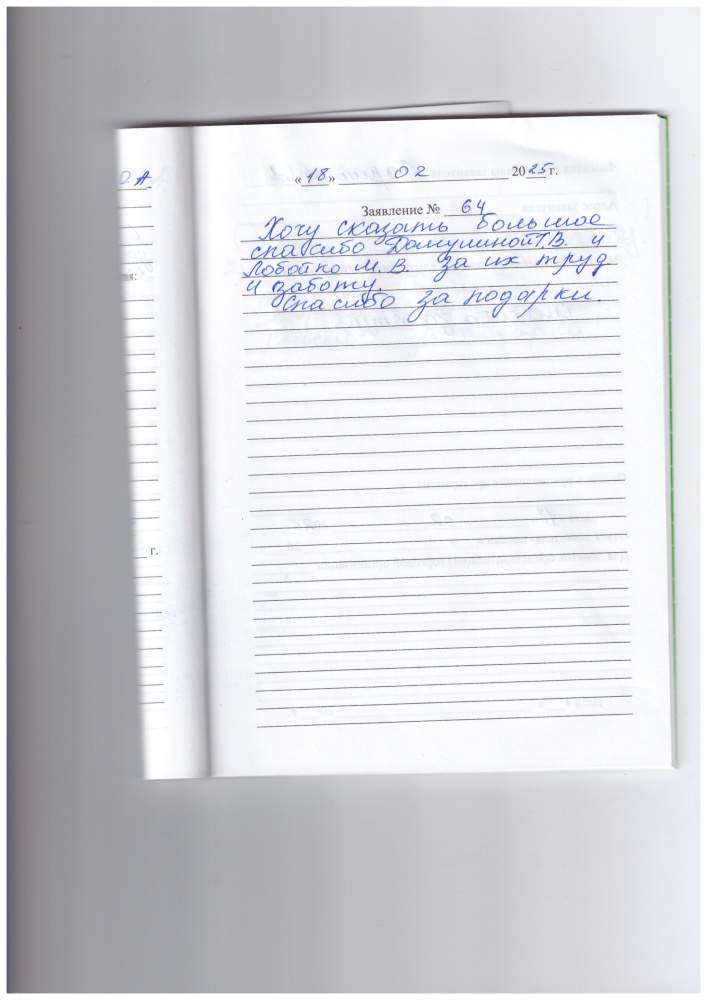 О. А
«18» 02 2025 г.
Заявление № 64
Хочу сказать большое
спасибо Дамулиной Т.В. и
Лобойко М. В. за их труд
и заботу.
Спасибо за подарки.
г.